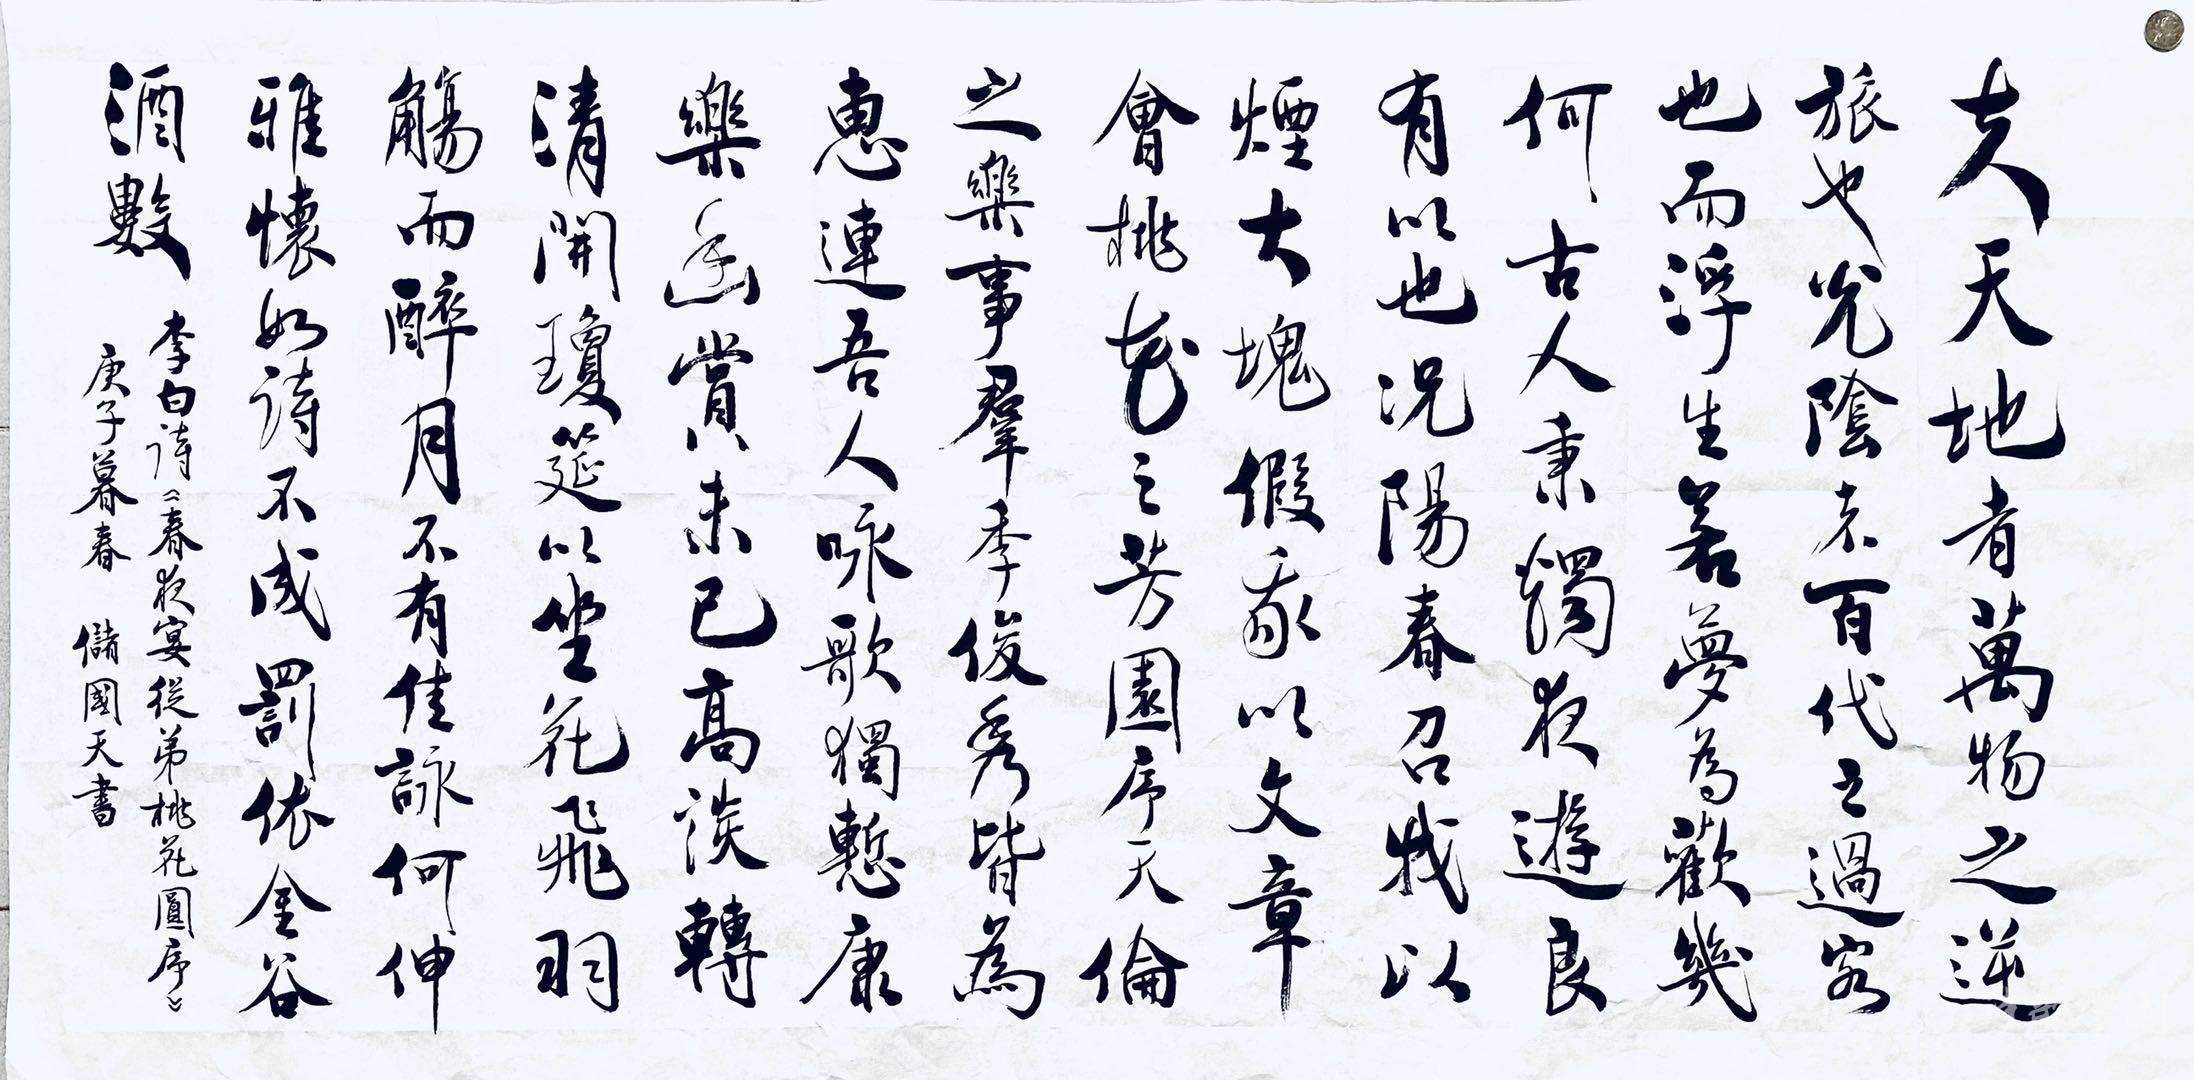 夫天地者萬物之逆
旅也光陰者百代之過客
也而浮生若夢為歡幾
何古人秉燭夜遊良
有以也況陽春召我以
煙大塊假我以文章
會桃花之芳園序天倫
之樂事羣季俊秀皆為
惠連吾人咏歌獨慙康
樂幽賞未已高談轉
清開瓊筵以坐花飛羽
觴而醉月不有佳詠何伸
雅懷如詩不成罰依金谷
酒數
李白詩《春夜宴從弟桃花園序》
庚子暮春 儲國天書